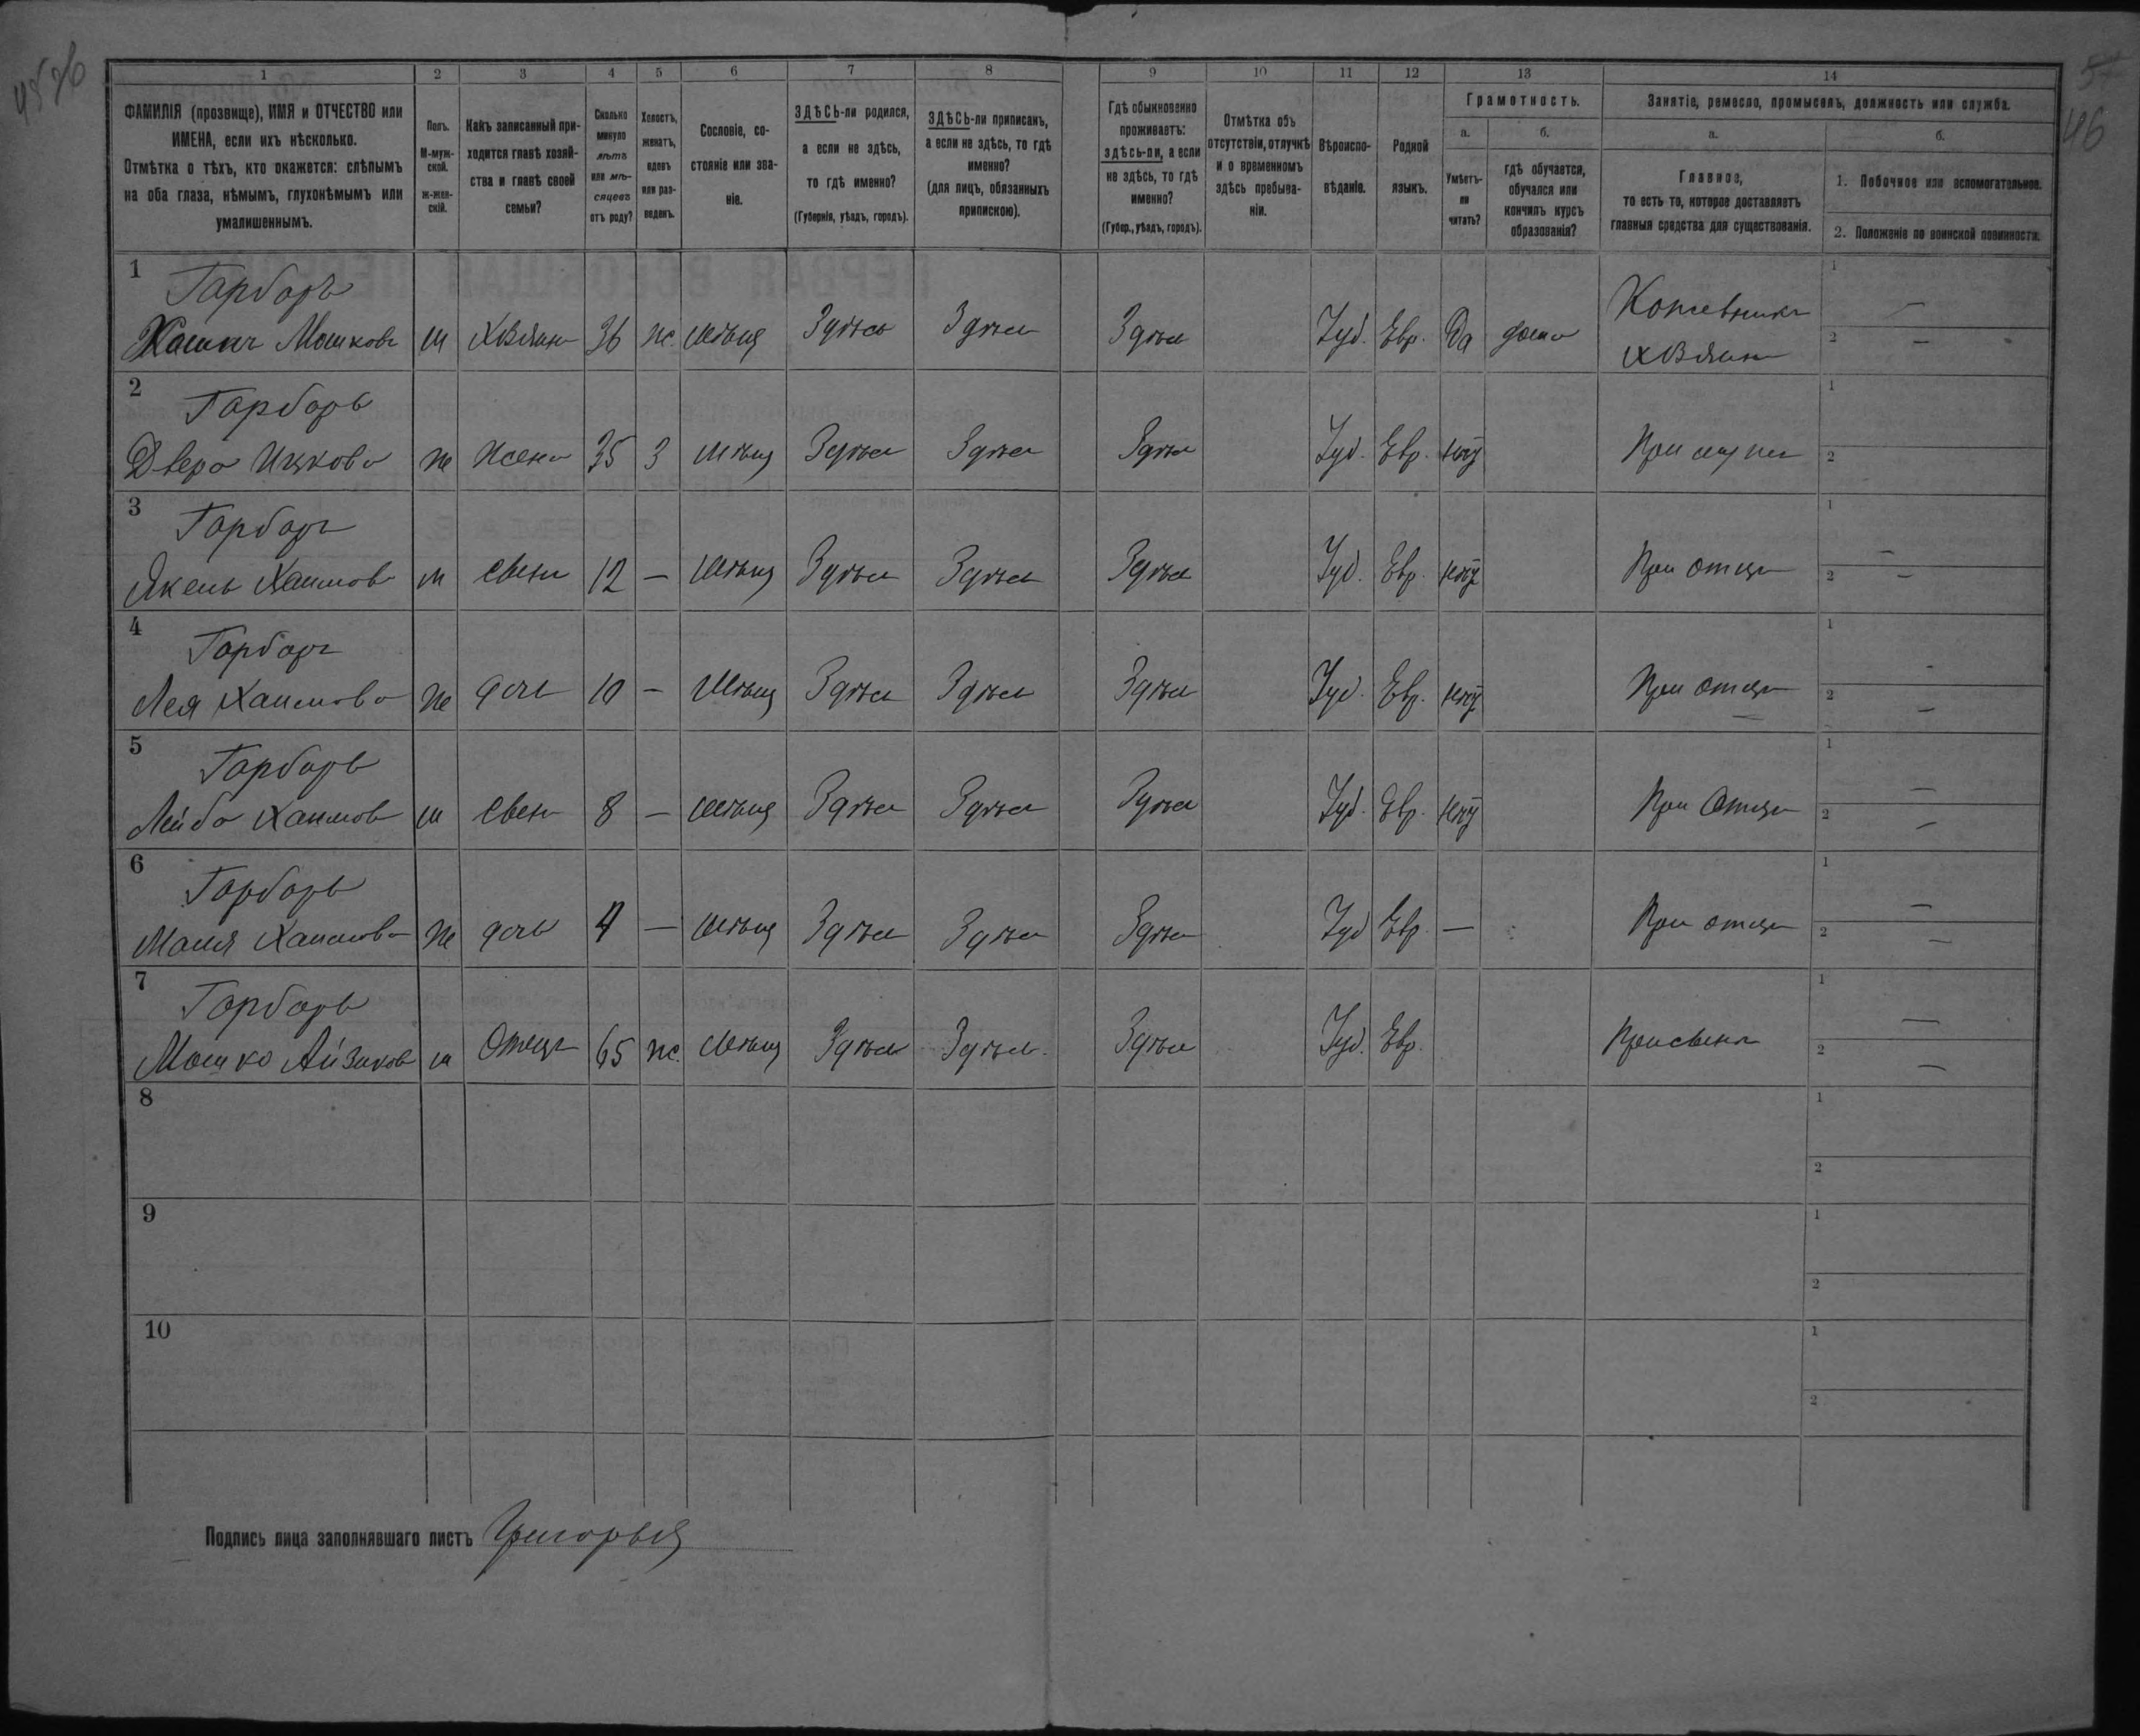 1 2 3 4 5 6 7 8 9 10 11 12 13 14
ФАМИЛІЯ (прозвище), ИМЯ и ОТЧЕСТВО или
ИМЕНА, если ихъ нѣсколько.
Отмѣтка о тѣхъ, кто окажется: слѣпымъ
на оба глаза, нѣмымъ, глухонѣмымъ или
умалишеннымъ.
Полъ.
М-муж-
ской.
ж-жен-
скій.
Какъ записанный при-
ходится главѣ хозяй-
ства и главѣ своей
семьи?
Сколько
минуло
лѣтъ
или мѣ-
сяцевъ
отъ роду?
Холостъ,
женатъ,
вдовъ
или раз-
веденъ.
Сословіе, со-
стояніе или зва-
ніе.
ЗДѢСЬ-ли родился,
а если не здѣсь,
то гдѣ именно?
(Губернія, уѣздъ, городъ).
ЗДѢСЬ-ли приписанъ,
а если не здѣсь, то гдѣ
именно?
(для лицъ, обязанныхъ
припискою).
Гдѣ обыкновенно
проживаетъ:
здѣсь-ли, а если
не здѣсь, то гдѣ
именно?
(Губер., уѣздъ, городъ).
Отмѣтка объ
отсутствіи, отлучкѣ
и о временномъ
здѣсь пребыва-
ніи.
Вѣроиспо-
вѣданіе.
Родной
языкъ.
Грамотность.
а.
Умѣетъ-
ли
читать?
б.
гдѣ обучается,
обучался или
кончилъ курсъ
образованія?
Занятіе, ремесло, промыселъ, должность или служба.
а.
Главное,
то есть то, которое доставляетъ
главныя средства для существованія.
б.
1. Побочное или вспомогательное.
2. Положеніе по воинской повинности.
1 Гарборъ
Хаимъ Мошковъ м хозяинъ 36 ж. мѣщ Здѣсь Здѣсь Здѣсь Іуд. Евр. Да дома Кожевникъ
хозяинъ
2 Гарборъ
Двера Ицкова ж жена 35 З мѣщ Здѣсь Здѣсь Здѣсь Іуд. Евр. нѣт При мужѣ
3 Гарборъ
Якель Хаимовъ м сынъ 12 — мѣщ Здѣсь Здѣсь Здѣсь Іуд. Евр. нѣт При отцѣ
4 Гарборъ
Лея Хаимова ж дочь 10 — мѣщ Здѣсь Здѣсь Здѣсь Іуд. Евр. нѣт При отцѣ
5 Гарборъ
Лейба Хаимовъ м сынъ 8 — мѣщ Здѣсь Здѣсь Здѣсь Іуд. Евр. нѣт При отцѣ
6 Гарборъ
Маля Хаимова ж дочь 4 — мѣщ Здѣсь Здѣсь Здѣсь Іуд Евр. — При отцѣ
7 Гарборъ
Мошко Айзиковъ м Отецъ 65 ж. мѣщ Здѣсь Здѣсь Здѣсь Іуд. Евр. При сынѣ
8
9
10
Подпись лица заполнявшаго листъ